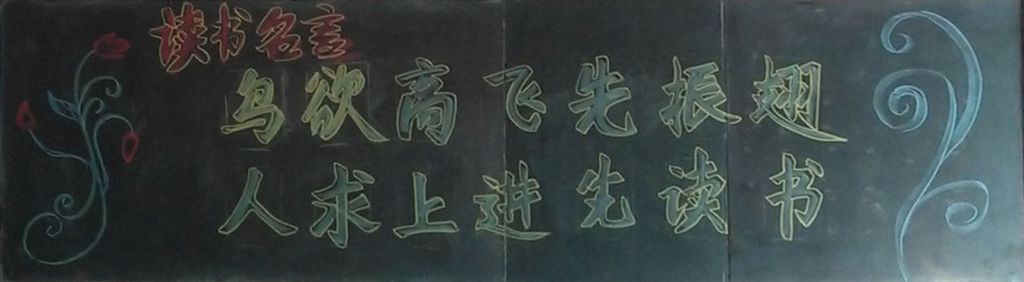 读书名言
鸟欲高飞先振翅
人求上进先读书